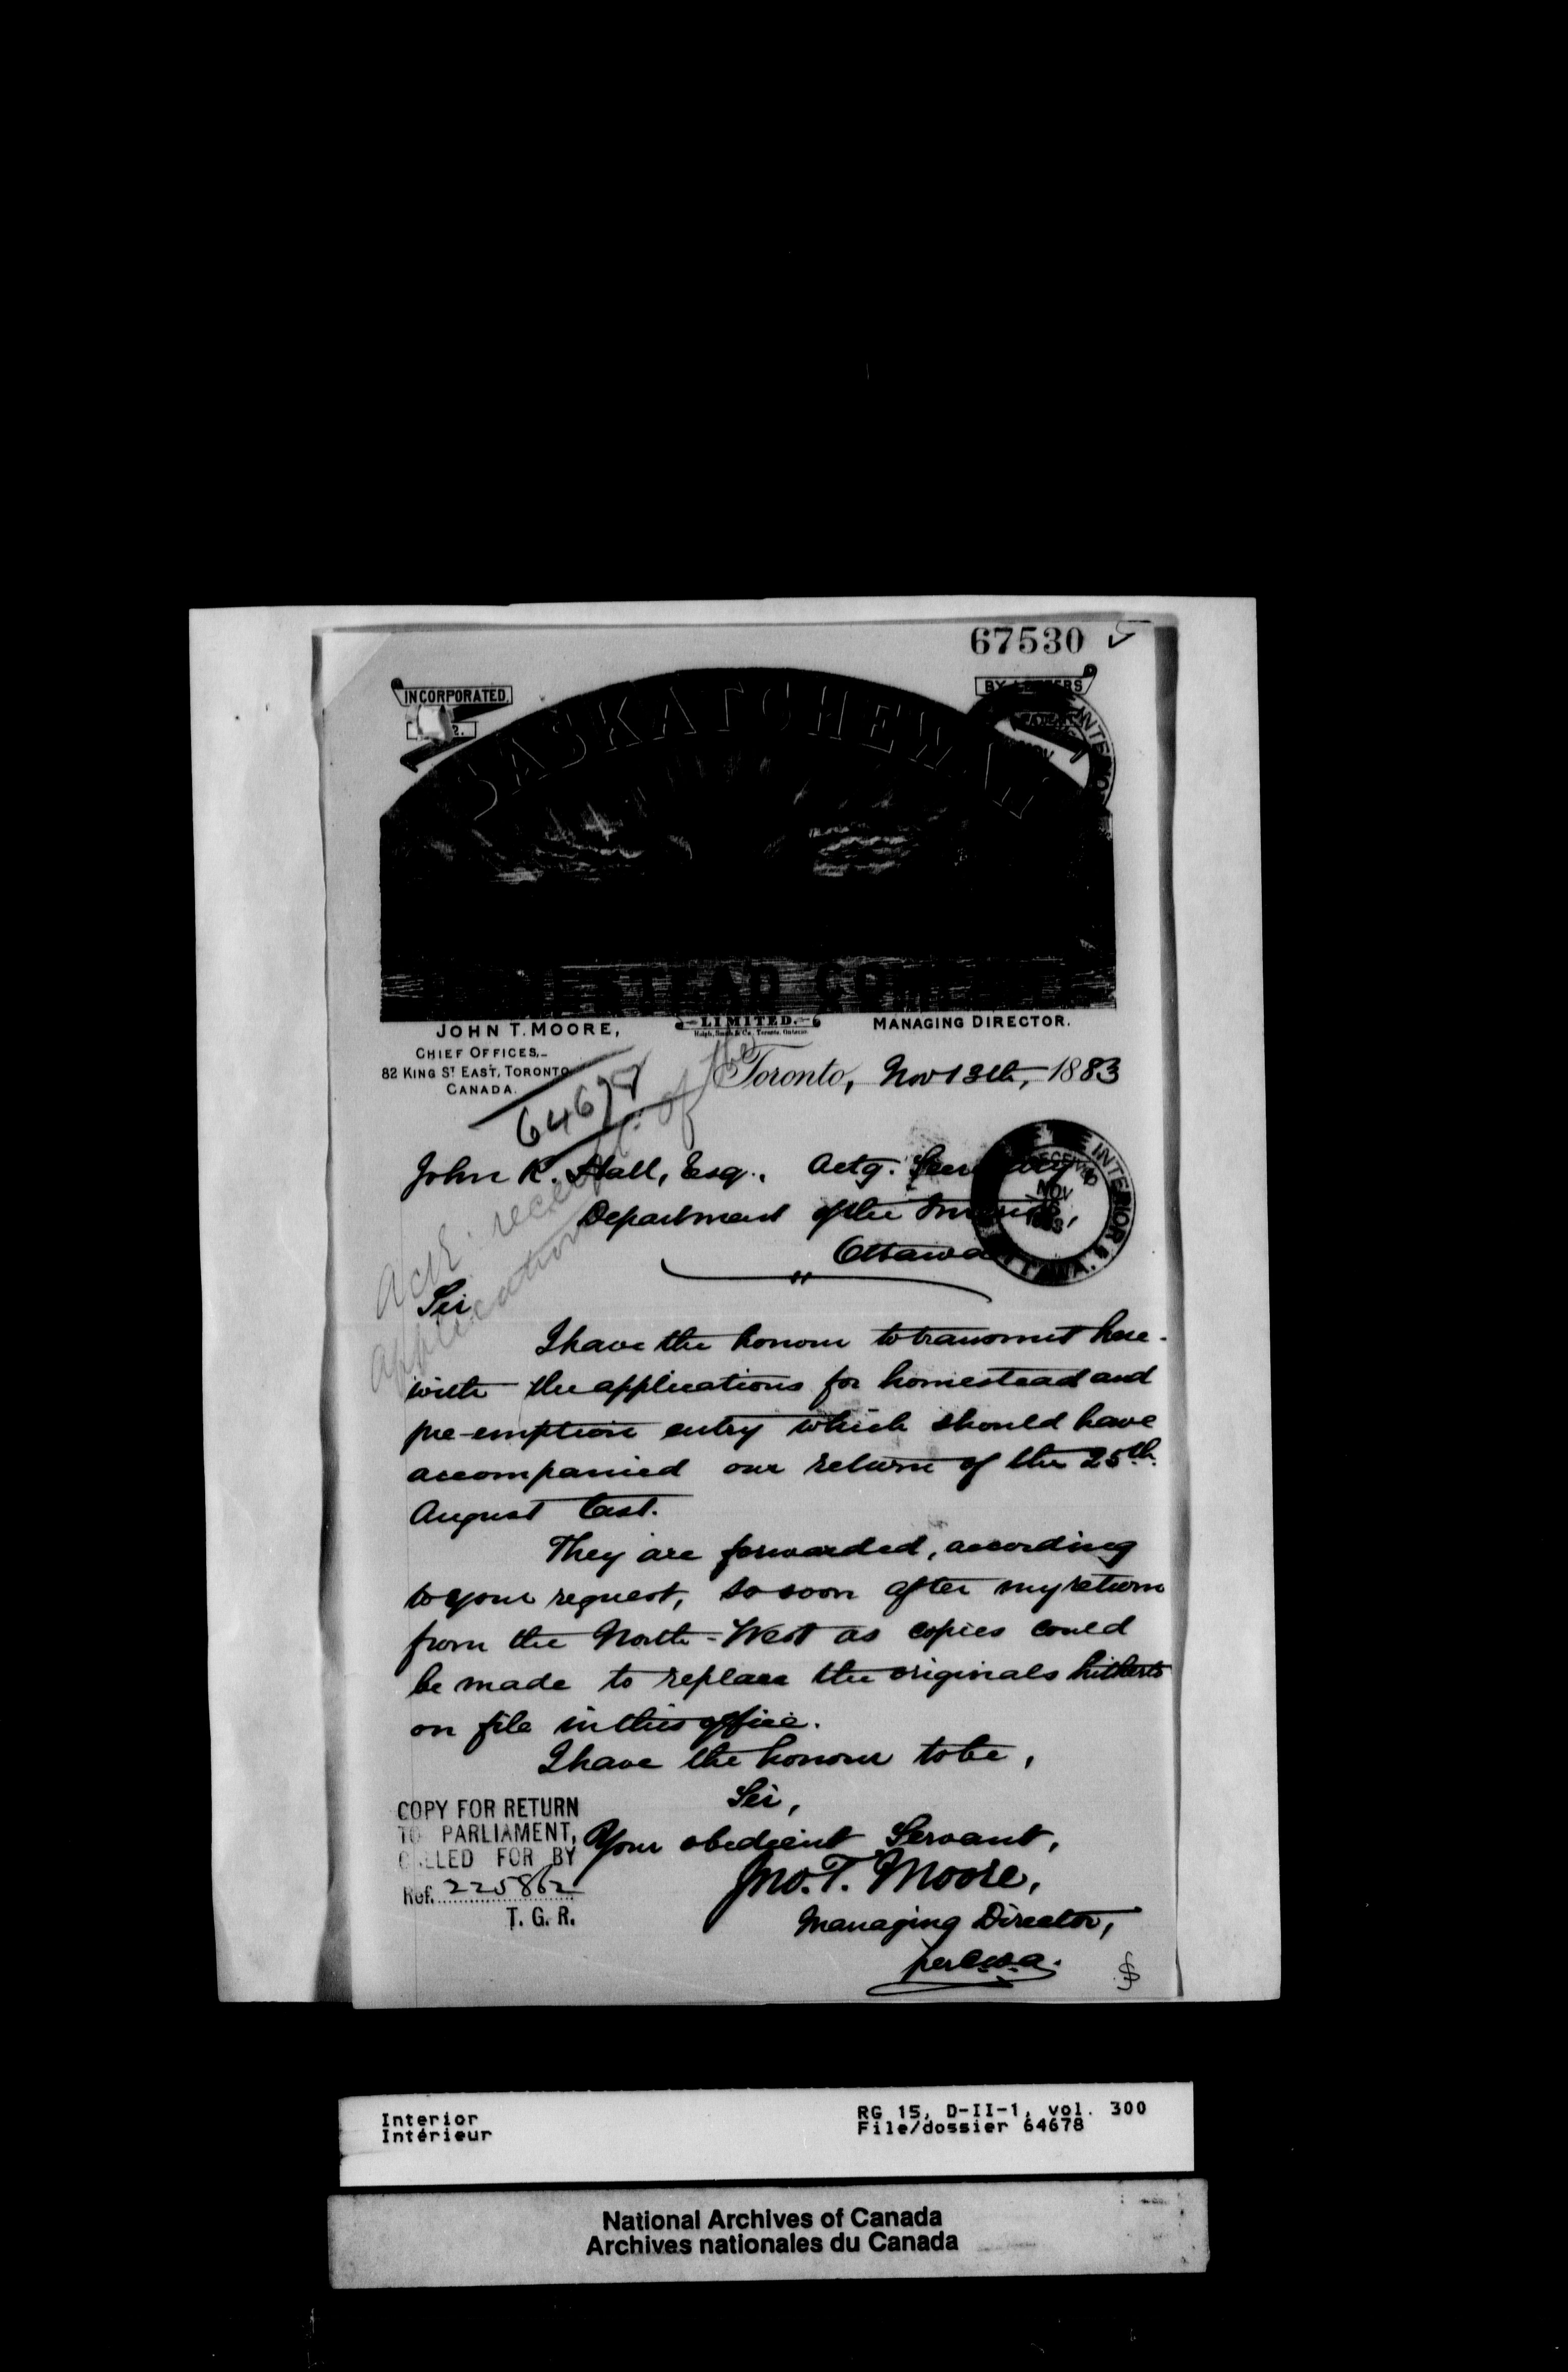 67530
INCORPORATED.
BY LETTERS
SASKATCHEWAN
HOMESTEAD COMPANY
LIMITED.
JOHN T. MOORE,
MANAGING DIRECTOR.
CHIEF OFFICES,-
82 KING ST EAST, TORONTO
CANADA.
Toronto, Nov 13th, 1883
64678
Ack. receipt of the
applications
John R. Hall, Esq., Actg. Secretary
Department of the Interior,
Ottawa
RECEIVED
NOV
1883
INTERIOR
Sir
I have the honour to transmit here-
with the applications for homestead and
pre-emption entry which should have
accompanied our return of the 25th
August last.
They are forwarded, according
to your request, so soon after my return
from the North-West as copies could
be made to replace the originals hitherto
on file in this office.
I have the honour to be,
Sir,
Your obedient Servant,
Jno. T. Moore,
Managing Director,
per
COPY FOR RETURN
TO PARLIAMENT,
CALLED FOR BY
Ref. 225862
T. G. R.
Interior
Intérieur
RG 15, D-II-1, vol. 300
File/dossier 64678
National Archives of Canada
Archives nationales du Canada